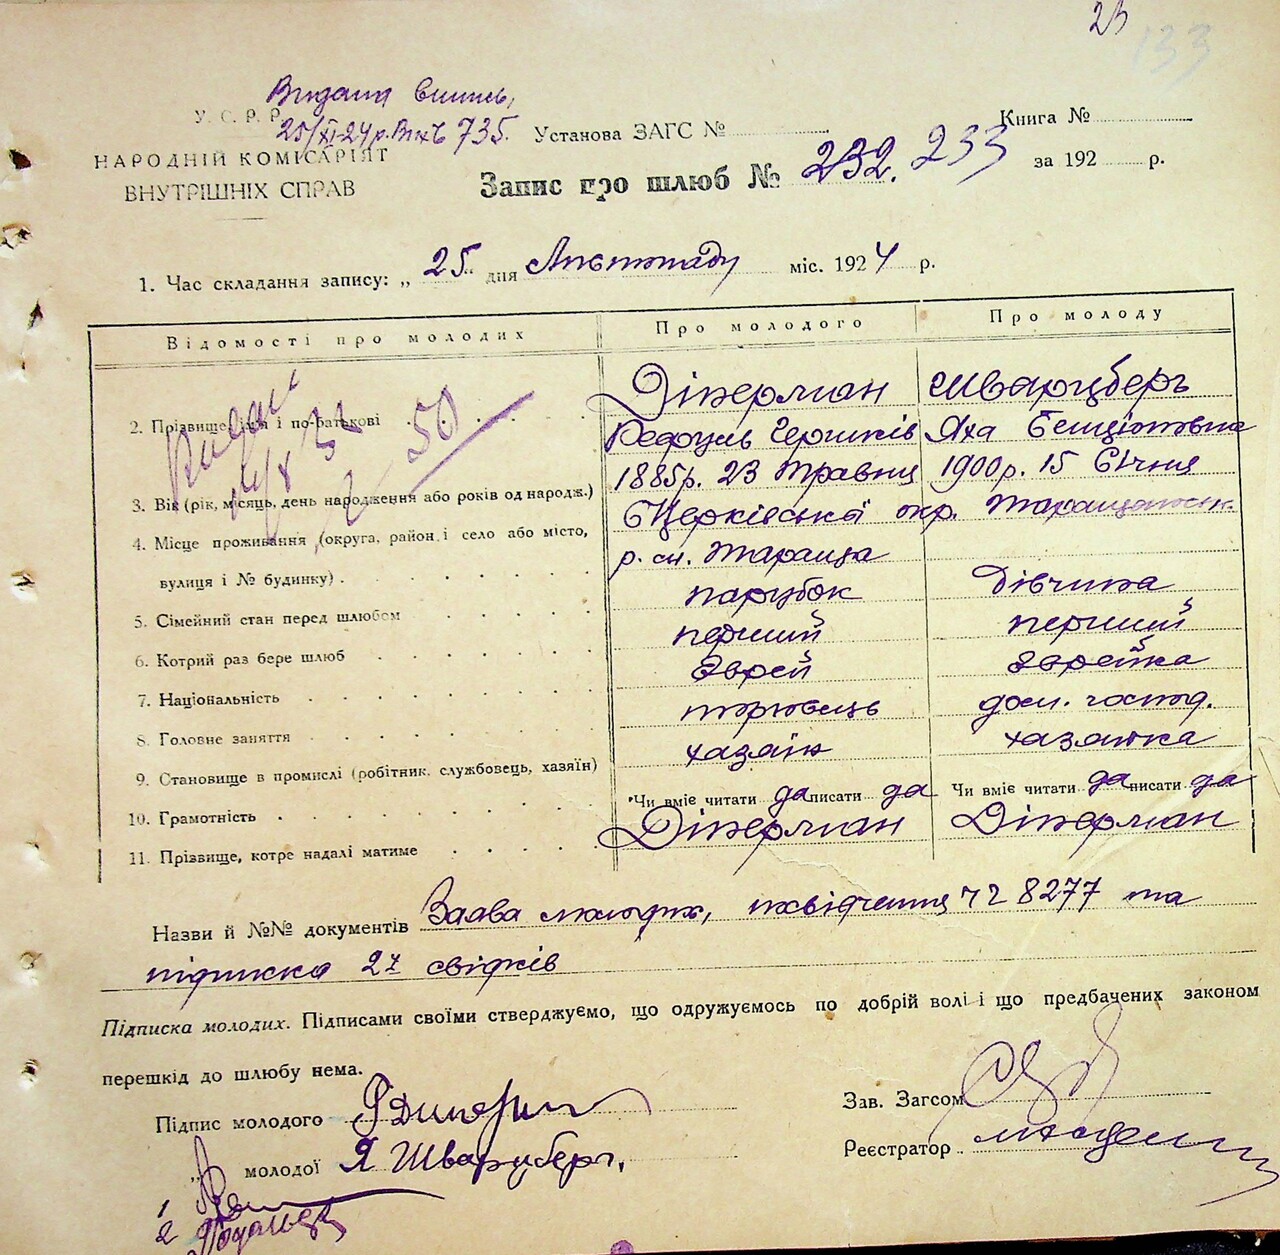 23
133
Видана випись,
У. С. Р. Р.
25/XI-24р. Вих № 735.
Установа ЗАГС №
Книга №
НАРОДНІЙ КОМІСАРІЯТ
ВНУТРІШНІХ СПРАВ
Запис про шлюб № 232. 233
за 192 р.
1. Час складання запису: „ 25 " дня Листопаду міс. 1924 р.
Відомості про молодих
Про молодого
Про молоду
2. Прізвище, ім'я і по-батькові
Діперман
Шварцберг
Рефуль Гершків
Яха Бенціоновна
3. Вік (рік, місяць, день народження або років од народж.)
1885р. 23 травня
1900р. 15 Січня
4. Місце проживання (округа, район, і село або місто,
вулиця і № будинку)
БЦерківська окр. Таращанськ.
р. м. Тараща
5. Сімейний стан перед шлюбом
парубок
дівчина
6. Котрий раз бере шлюб
перший
перший
7. Національність
єврей
єврейка
8. Головне заняття
торговець
дом. господ.
9. Становище в промислі (робітник, службовець, хазяїн)
хазяїн
хазяйка
10. Грамотність
Чи вміє читати да писати да
Чи вміє читати да писати да
11. Прізвище, котре надалі матиме
Діперман
Діперман
Назви й №№ документів Заява молодих, посвідчення ч 8277 та
підписка 2х свідків
Підписка молодих. Підписами своїми стверджуємо, що одружуємось по добрій волі і що предбачених законом
перешкід до шлюбу нема.
Підпис молодого
Зав. Загсом
„ молодої Я Шварцберг.
Реєстратор
1
2